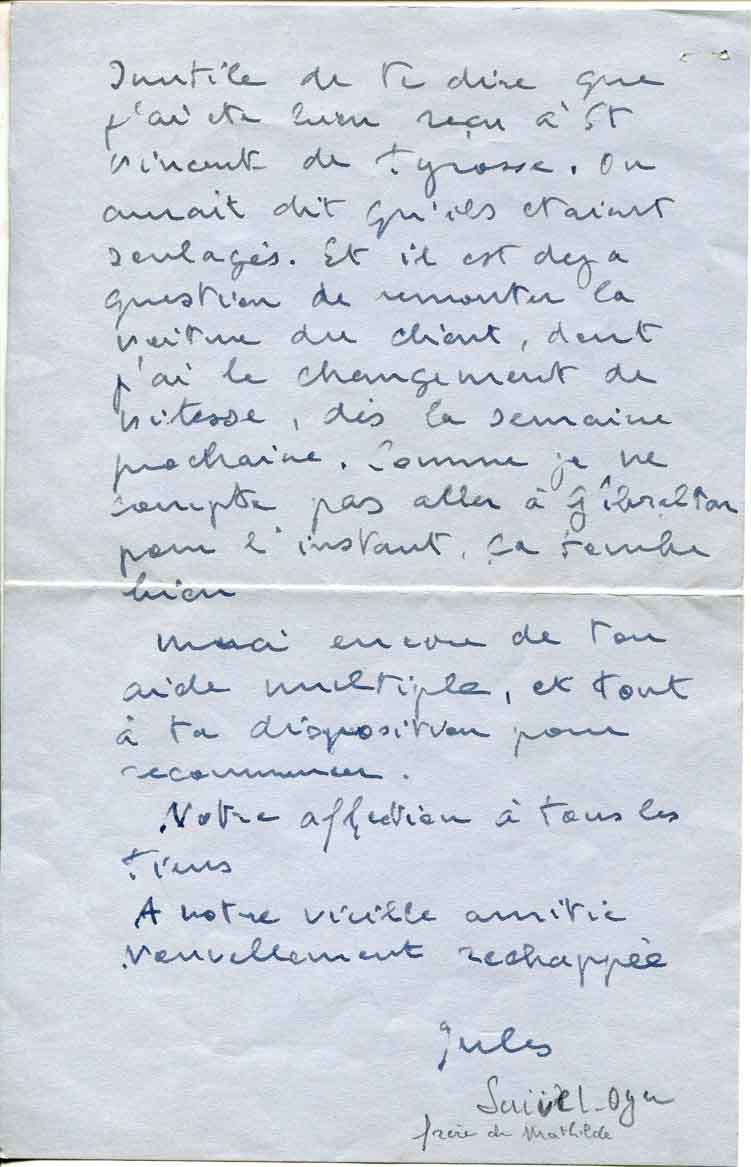 Inutile de te dire que
j'ai été bien reçu à St
Vincent de Tyrosse. On
aurait dit qu'ils etaient
soulagés. Et il est deja
question de remonter la
voiture du client, dont
j'ai le changement de
vitesse, dès la semaine
prochaine. Comme je ne
compte pas aller à Gibraltar
pour l'instant, ça tombe
bien
Merci encore de ton
aide multiple, et tout
à ta disposition pour
recommencer.
Notre affection à tous les
tiens
A notre vieille amitié
nouvellement rechappée
Jules
frère de Mathilde